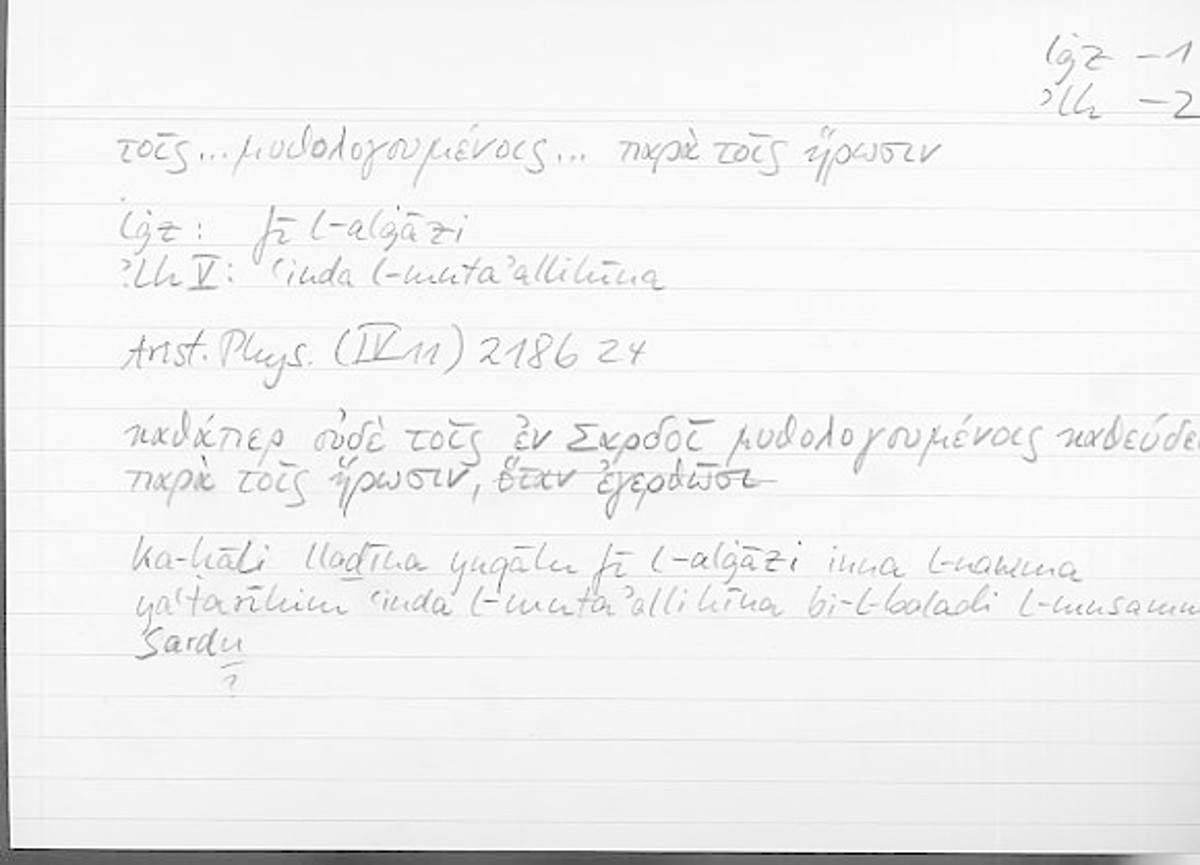 lġz – 1
ʾlh – 2
τοῖς... μυθολογουμένοις... παρὰ τοῖς ἥρωσιν
lġz: fī l-alġāzi
ʾlh V: ʿinda l-mutaʾallihīna
Arist. Phys. (IV 11) 218b 24
καθάπερ οὐδὲ τοῖς ἐν Σαρδοῖ μυθολογουμένοις καθεύδε
παρὰ τοῖς ἥρωσιν, ὅταν ἐγερθῶσι
ka-hāli lladīna yuqālu fī l-alġāzi inna l-nauma
yaʿtarīhim ʿinda l-mutaʾallihīna bi-l-baladi l-musamm
Sardu
?